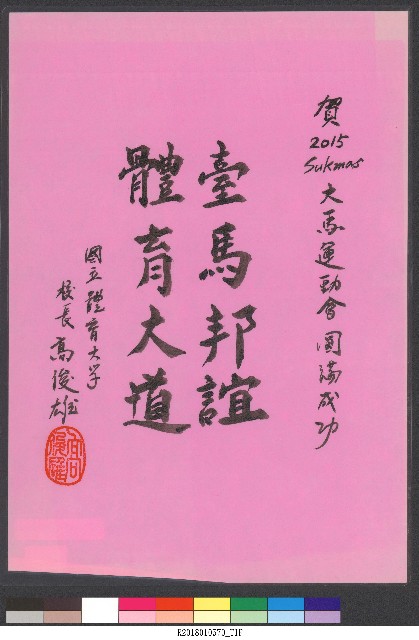 賀
2015
Sukmas
大馬運動會圓滿成功
臺馬邦誼
體育大道
國立體育大学
校長高俊雄
R2018010570_TIF